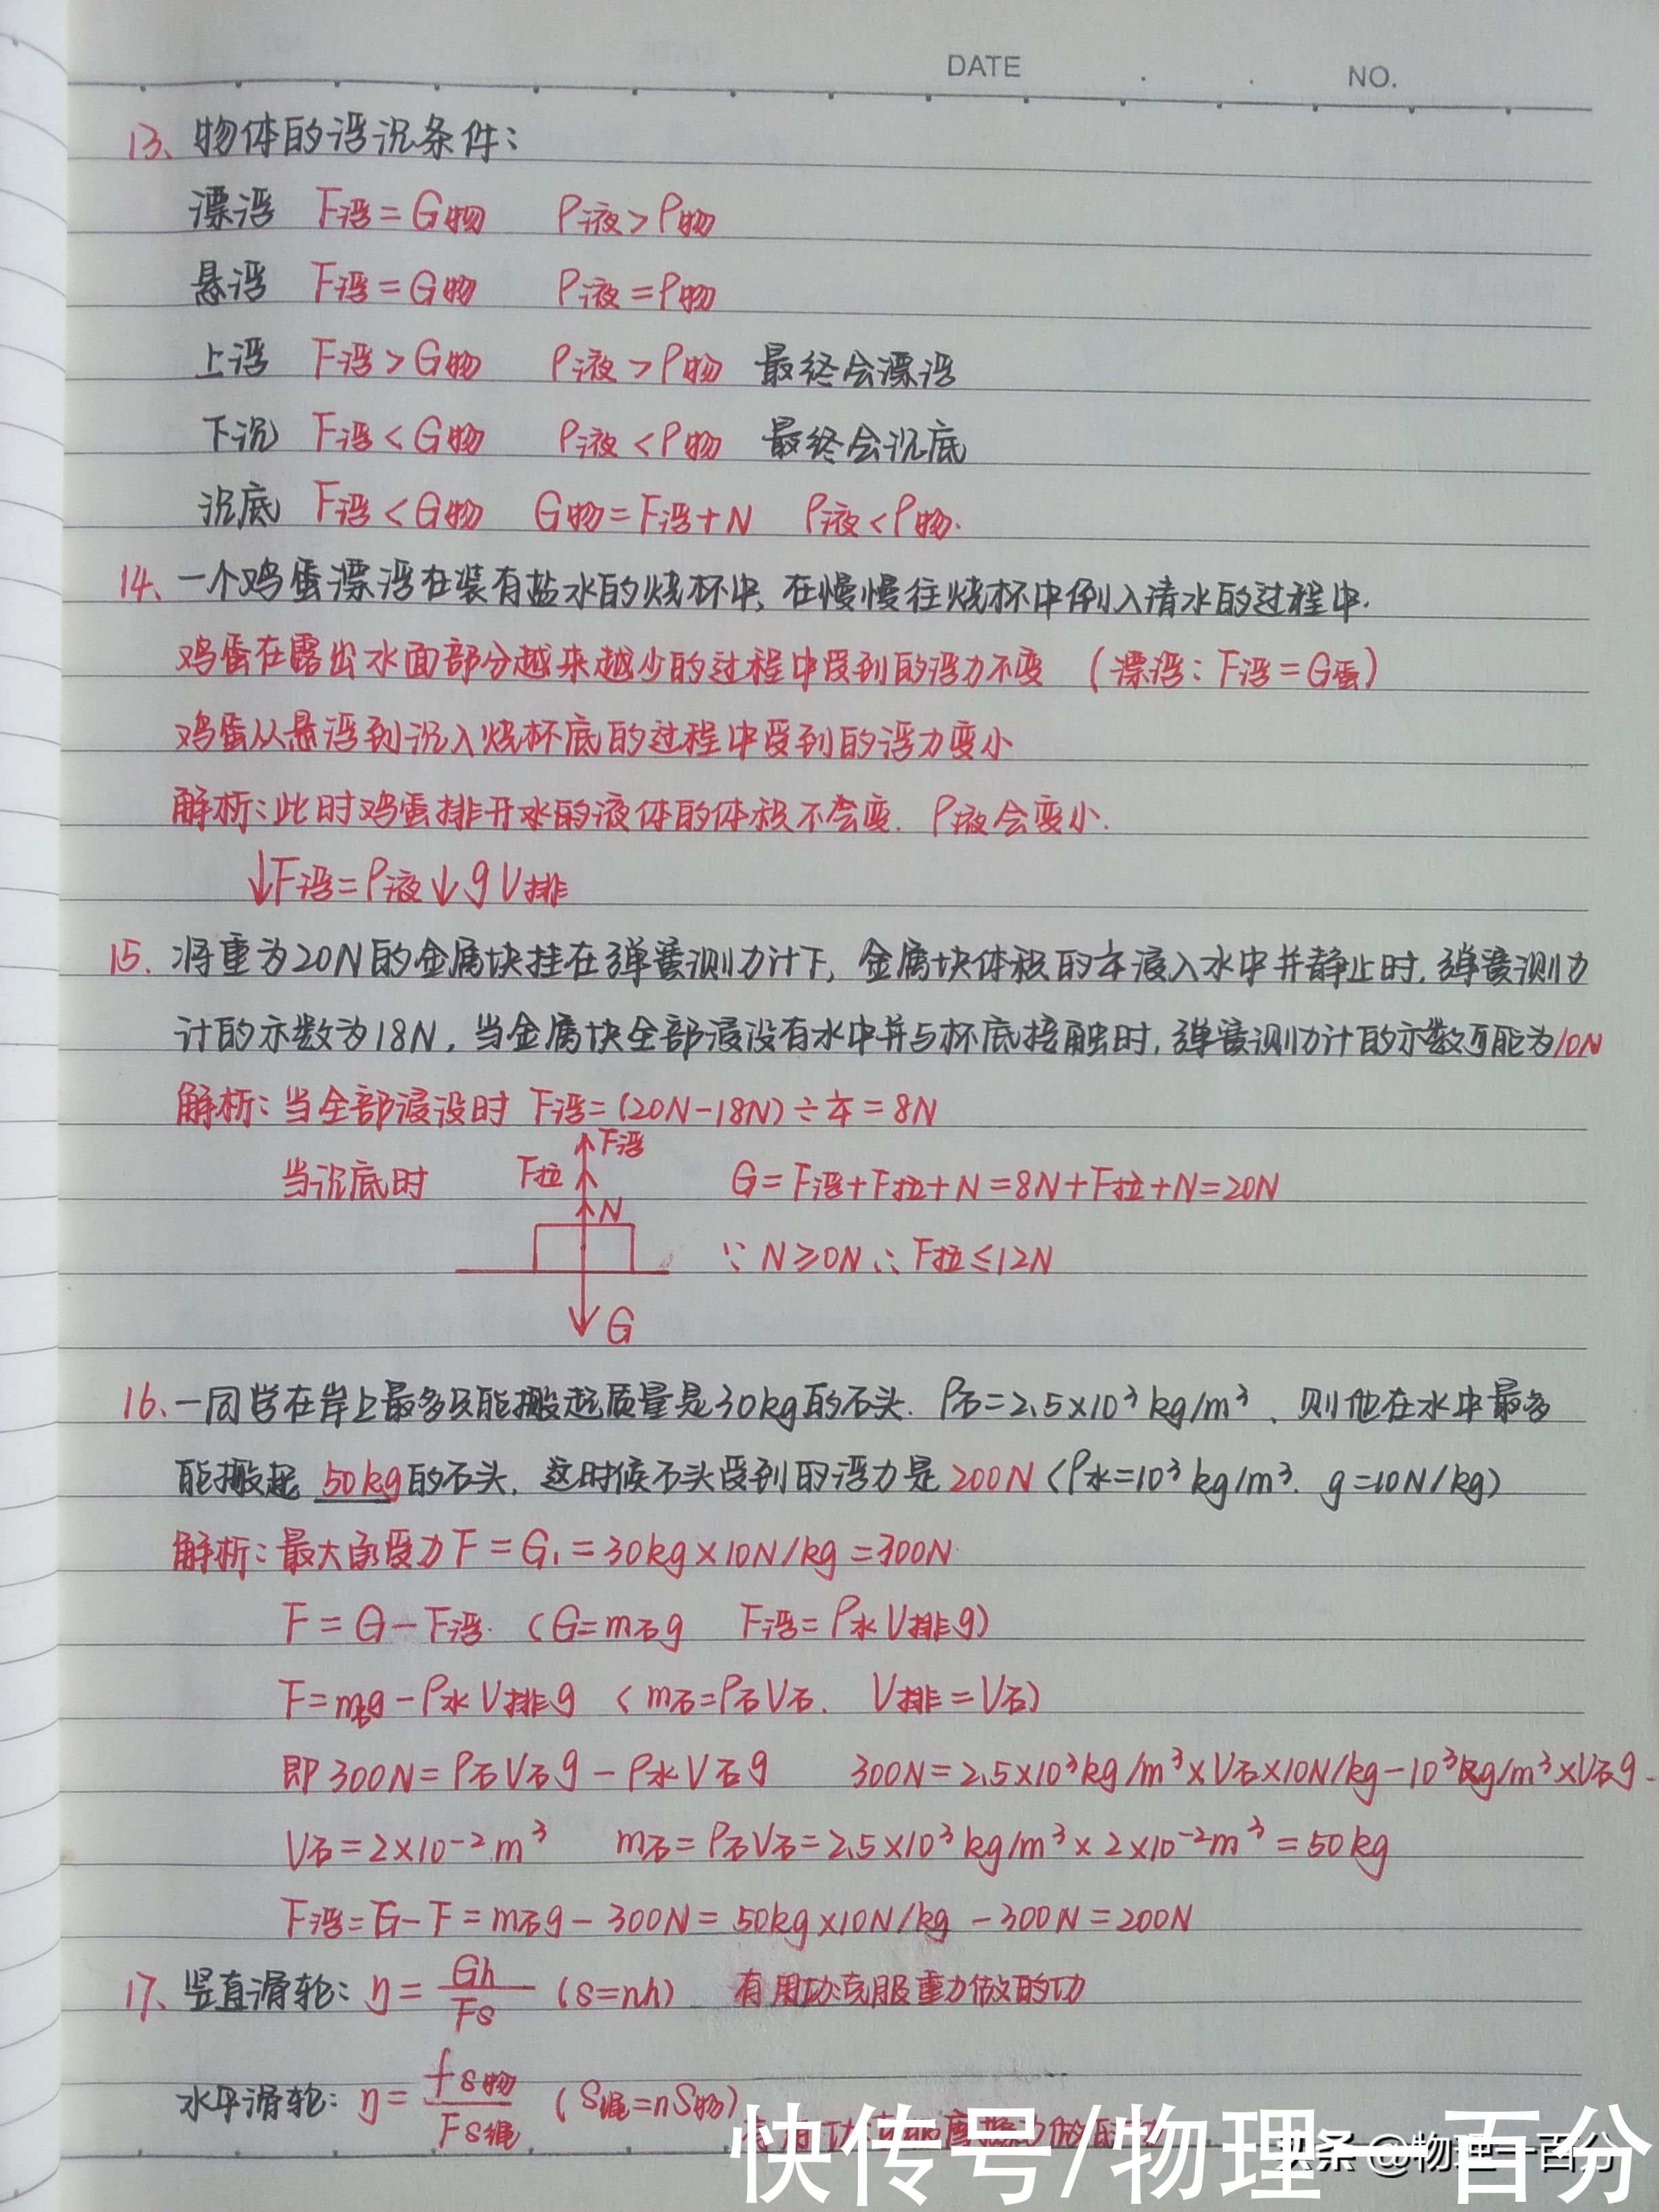 DATE . . NO.
13、物体的浮沉条件:
漂浮 F浮=G物 ρ液>ρ物
悬浮 F浮=G物 ρ液=ρ物
上浮 F浮>G物 ρ液>ρ物 最终会漂浮
下沉 F浮<G物 ρ液<ρ物 最终会沉底
沉底 F浮<G物 G物=F浮+N ρ液<ρ物.
14、一个鸡蛋漂浮在装有盐水的烧杯中, 在慢慢往烧杯中倒入清水的过程中.
鸡蛋在露出水面部分越来越少的过程中受到的浮力不变 (漂浮: F浮=G蛋)
鸡蛋从悬浮到沉入烧杯底的过程中受到的浮力变小
解析: 此时鸡蛋排开水的液体的体积不会变. ρ液会变小.
↓F浮=ρ液↓gV排
15. 将重为20N的金属块挂在弹簧测力计下, 金属块体积的¼浸入水中并静止时, 弹簧测力
计的示数为18N, 当金属块全部浸没有水中并与杯底接触时, 弹簧测力计的示数可能为10N
解析: 当全部浸没时 F浮=(20N-18N)÷¼=8N
F浮
当沉底时 F拉 G=F浮+F拉+N=8N+F拉+N=20N
N
∵N≥0N ∴F拉≤12N
G
16、一同学在岸上最多只能搬起质量是30kg的石头. ρ石=2.5×10³kg/m³、则他在水中最多
能搬起 50kg的石头, 这时候石头受到的浮力是200N (ρ水=10³kg/m³. g=10N/kg)
解析: 最大承受力F=G₁=30kg×10N/kg=300N
F=G-F浮. (G=m石g F浮=ρ水V排g)
F=m石g-ρ水V排g (m石=ρ石V石. V排=V石)
即300N=ρ石V石g-ρ水V石g 300N=2.5×10³kg/m³×V石×10N/kg-10³kg/m³×V石g
V石=2×10⁻²m³ m石=ρ石V石=2.5×10³kg/m³×2×10⁻²m³=50kg
F浮=G-F=m石g-300N=50kg×10N/kg-300N=200N
17、竖直滑轮: η=Gh/Fs (s=nh) 有用功:克服重力做的功
水平滑轮: η=fs物/Fs绳 (S绳=nS物)
快传号/物理一百分
头条 @物理一百分